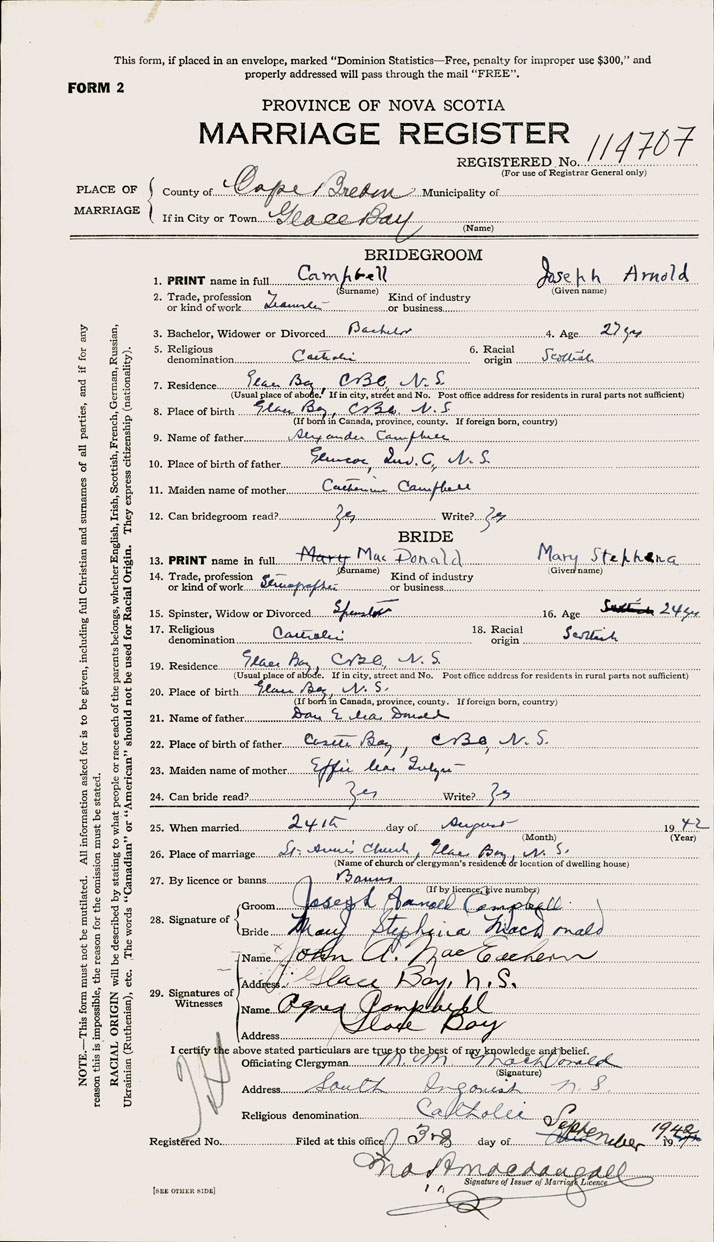 This form, if placed in an envelope, marked "Dominion Statistics—Free, penalty for improper use $300," and
properly addressed will pass through the mail "FREE".
FORM 2
PROVINCE OF NOVA SCOTIA
MARRIAGE REGISTER
REGISTERED No. 114707
(For use of Registrar General only)
PLACE OF MARRIAGE
County of Cape Breton Municipality of
If in City or Town Glace Bay
(Name)
BRIDEGROOM
1. PRINT name in full Campbell Joseph Arnold
(Surname) (Given name)
2. Trade, profession or kind of work Kind of industry or business
3. Bachelor, Widower or Divorced Bachelor 4. Age 27 yrs
5. Religious denomination Catholic 6. Racial origin Scottish
7. Residence Glace Bay, CBCo, N.S.
(Usual place of abode. If in city, street and No. Post office address for residents in rural parts not sufficient)
8. Place of birth Glace Bay, CBCo, N.S.
(If born in Canada, province, county. If foreign born, country)
9. Name of father Alexander Campbell
10. Place of birth of father Glencoe, Inv. Co, N.S.
11. Maiden name of mother Catherine Campbell
12. Can bridegroom read? Yes Write? Yes
BRIDE
13. PRINT name in full Mary MacDonald Mary Stephena
(Surname) (Given name)
14. Trade, profession or kind of work Stenographer Kind of industry or business
15. Spinster, Widow or Divorced Spinster 16. Age Scottish 24 yrs
17. Religious denomination Catholic 18. Racial origin Scottish
19. Residence Glace Bay, CBCo, N.S.
(Usual place of abode. If in city, street and No. Post office address for residents in rural parts not sufficient)
20. Place of birth Glace Bay, N.S.
(If born in Canada, province, county. If foreign born, country)
21. Name of father Dan E MacDonald
22. Place of birth of father Bay, CBCo, N.S.
23. Maiden name of mother Effie Mac
24. Can bride read? Yes Write? Yes
25. When married 24th day of August 1942
(Month) (Year)
26. Place of marriage St. Anne's Church, Glace Bay, N.S.
(Name of church or clergyman's residence or location of dwelling house)
27. By licence or banns Banns
(If by licence, give number)
28. Signature of
Groom Joseph Arnold Campbell
Bride Mary Stephena MacDonald
29. Signatures of Witnesses
Name John A. MacEachern
Address Glace Bay, N.S.
Name Agnes Campbell
Address Glace Bay
I certify the above stated particulars are true to the best of my knowledge and belief.
Officiating Clergyman M. M. MacDonald
(Signature)
Address South Ingonish N.S.
Religious denomination Catholic
Registered No. Filed at this office 3rd day of September 1942
Signature of Issuer of Marriage Licence
[SEE OTHER SIDE]
NOTE.—This form must not be mutilated. All information asked for is to be given, including full Christian and surnames of all parties, and if for any
reason this is impossible, the reason for the omission must be stated.
RACIAL ORIGIN will be described by stating to what people or race each of the parents belongs, whether English, Irish, Scottish, French, German, Russian,
Ukrainian (Ruthenian), etc. The words "Canadian" or "American" should not be used for Racial Origin. They express citizenship (nationality).